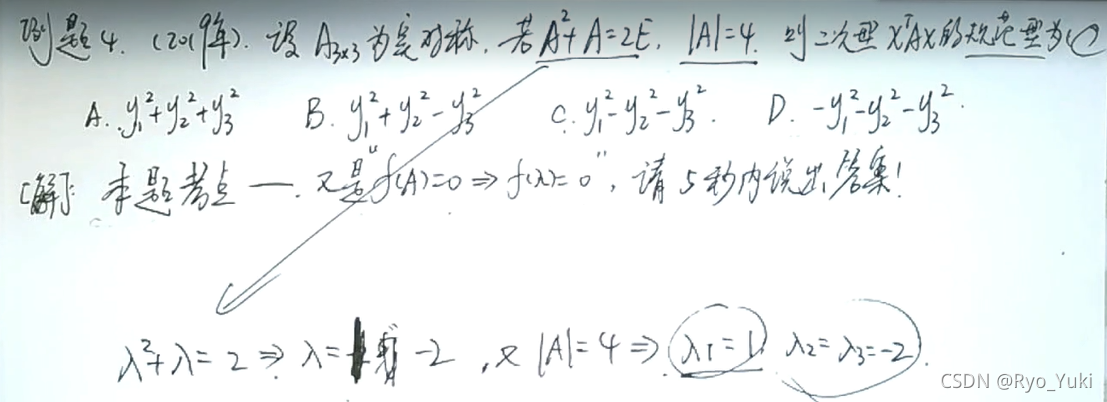 例题4.(2019年).设A₃ₓ₃为实对称.若A²+A=2E.|A|=4.则二次型xᵀAx的规范型为()
A. y₁²+y₂²+y₃² B. y₁²+y₂²-y₃² C. y₁²-y₂²-y₃². D. -y₁²-y₂²-y₃².
[解]:本题考点一.又是"f(A)=0⇒f(λ)=0",请5秒内说出答案!
λ²+λ=2⇒λ= -2,又|A|=4⇒λ₁=1. λ₂=λ₃=-2.
CSDN @Ryo_Yuki